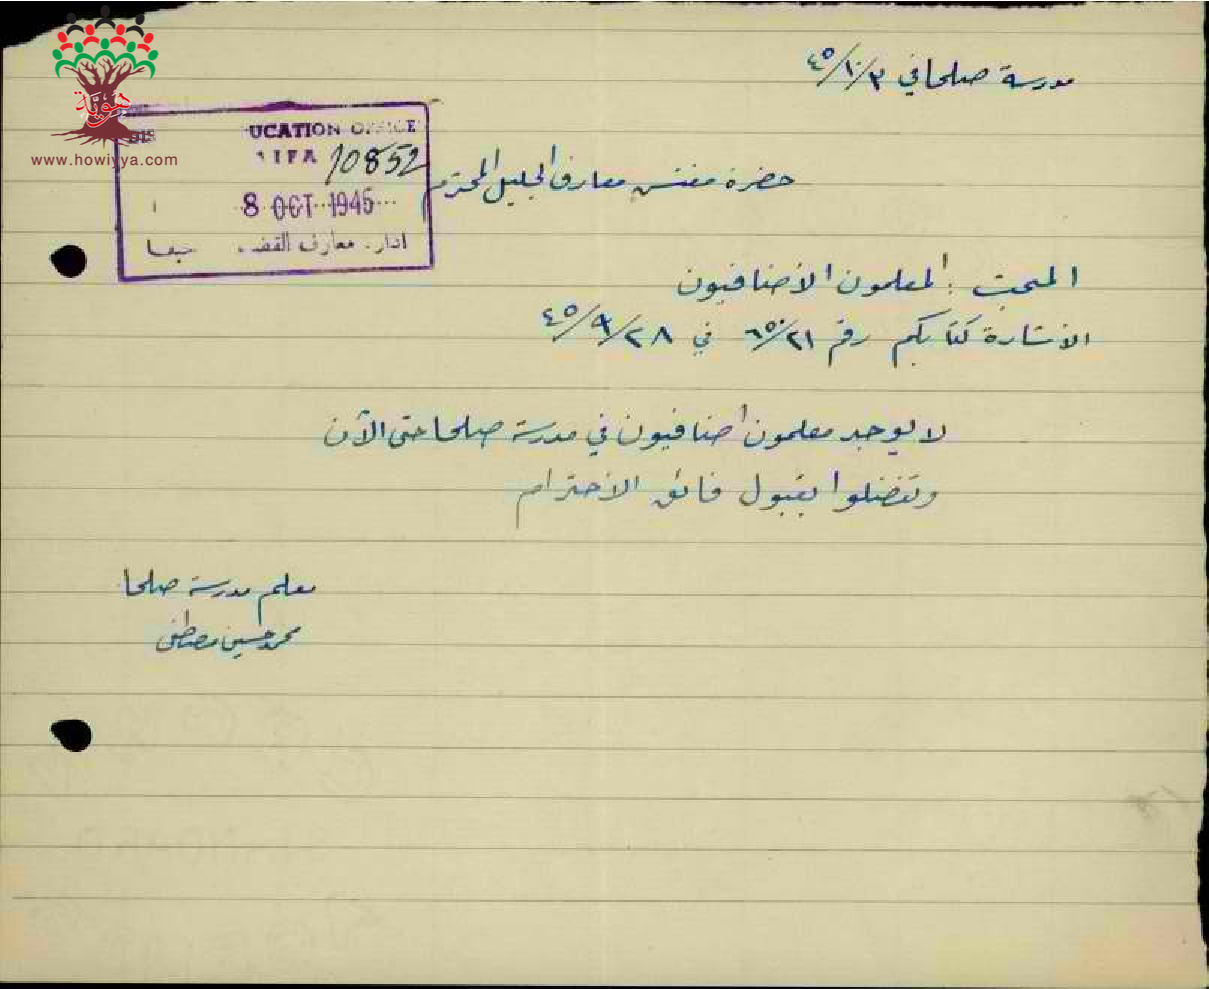 مدرسة صلحا في ٤٥/١٠/٣
هوية
www.howiyya.com
UCATION OFFICE
IFA 10852
8 OCT 1945
ادار. معارف القضـ.
حضرة مفتش معارف الجليل المحترم
المبحث : المعلمون الاضافيون
الاشارة كتابكم رقم ٦٥/٢١ في ٤٥/٩/٢٨
لا يوجد معلمون اضافيون في مدرسة صلحا حتى الآن
وتفضلوا بقبول فائق الاحترام
معلم مدرسة صلحا
محمد حسين مصطفى